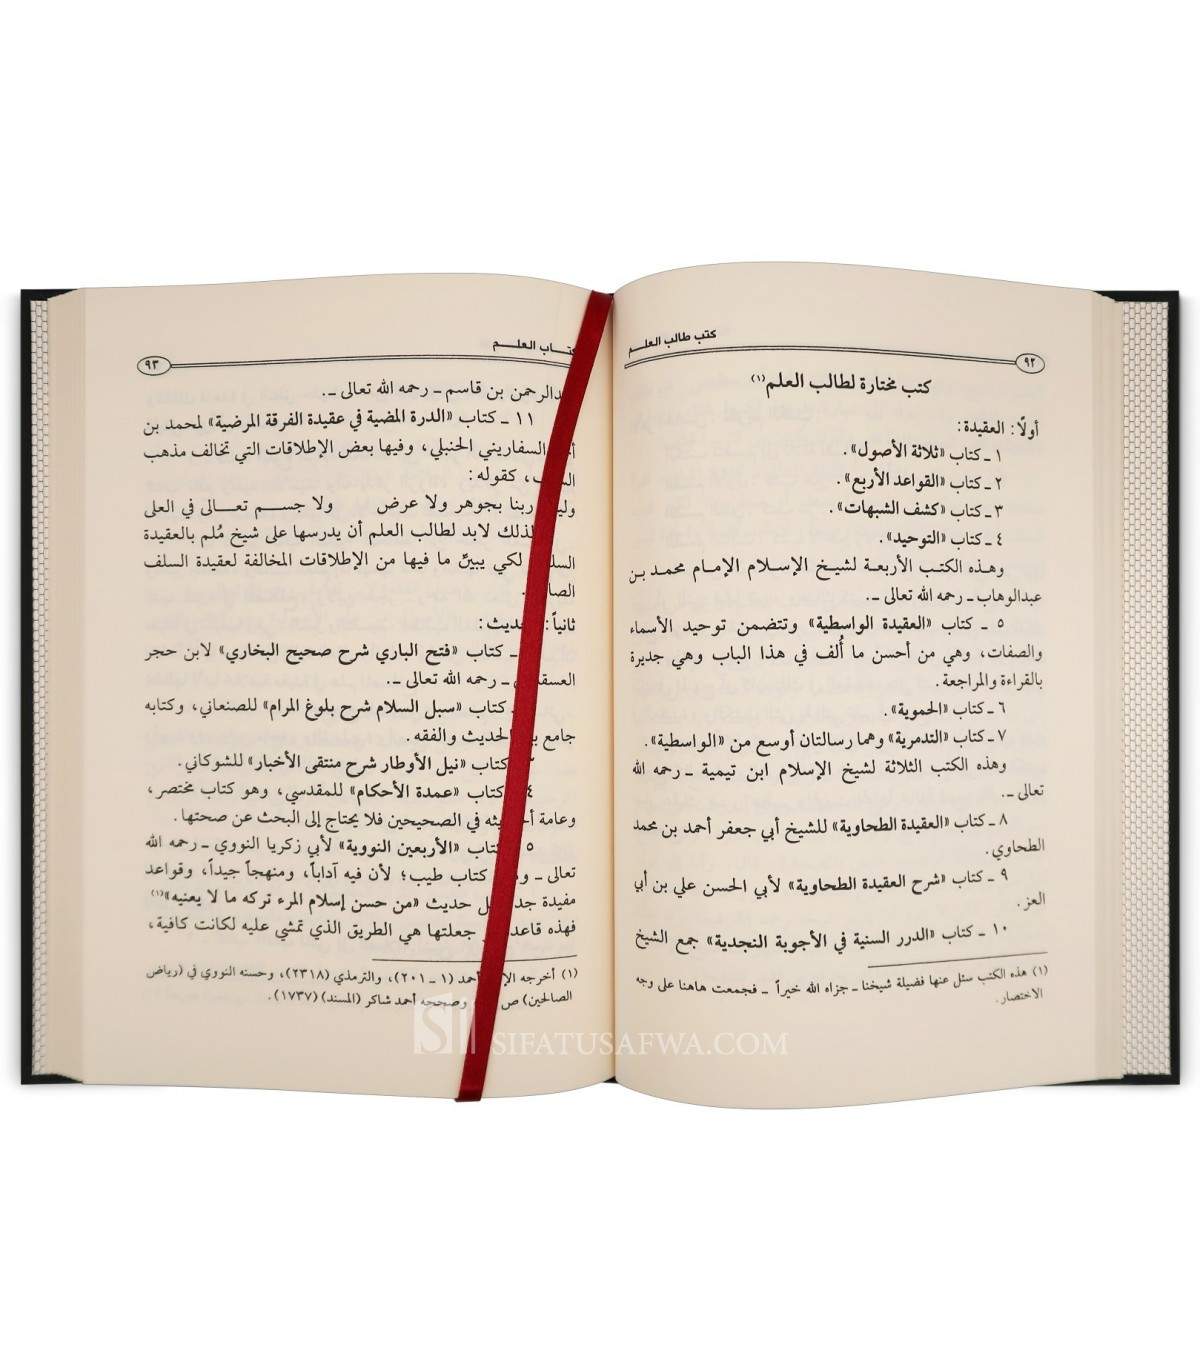 ٩٢
كتب طالب العلم
كتب مختارة لطالب العلم(١)
أولًا: العقيدة:
١ ـ كتاب «ثلاثة الأصول».
٢ ـ كتاب «القواعد الأربع».
٣ ـ كتاب «كشف الشبهات».
٤ ـ كتاب «التوحيد».
وهذه الكتب الأربعة لشيخ الإسلام الإمام محمد بن
عبدالوهاب ـ رحمه الله تعالى ـ.
٥ ـ كتاب «العقيدة الواسطية» وتتضمن توحيد الأسماء
والصفات، وهي من أحسن ما أُلف في هذا الباب وهي جديرة
بالقراءة والمراجعة.
٦ ـ كتاب «الحموية».
٧ ـ كتاب «التدمرية» وهما رسالتان أوسع من «الواسطية».
وهذه الكتب الثلاثة لشيخ الإسلام ابن تيمية ـ رحمه الله
تعالى ـ.
٨ ـ كتاب «العقيدة الطحاوية» للشيخ أبي جعفر أحمد بن محمد
الطحاوي.
٩ ـ كتاب «شرح العقيدة الطحاوية» لأبي الحسن علي بن أبي
العز.
١٠ ـ كتاب «الدرر السنية في الأجوبة النجدية» جمع الشيخ
(١) هذه الكتب سئل عنها فضيلة شيخنا ـ جزاه الله خيراً ـ فجمعت هاهنا على وجه
الاختصار.
العلم
٩٣
بن قاسم ـ رحمه الله تعالى ـ.
١١ ـ كتاب «الدرة المضية في عقيدة الفرقة المرضية» لمحمد بن
السفاريني الحنبلي، وفيها بعض الإطلاقات التي تخالف مذهب
، كقوله:
ربنا بجوهر ولا عرض ولا جسم تعالى في العلى
لذلك لابد لطالب العلم أن يدرسها على شيخ مُلم بالعقيدة
لكي يبيِّن ما فيها من الإطلاقات المخالفة لعقيدة السلف
.
ثانياً: :
ـ كتاب «فتح الباري شرح صحيح البخاري» لابن حجر
ـ رحمه الله تعالى ـ.
كتاب «سبل السلام شرح بلوغ المرام» للصنعاني، وكتابه
جامع الحديث والفقه.
كتاب «نيل الأوطار شرح منتقى الأخبار» للشوكاني.
٤ كتاب «عمدة الأحكام» للمقدسي، وهو كتاب مختصر،
وعامة في الصحيحين فلا يحتاج إلى البحث عن صحتها.
٥ كتاب «الأربعين النووية» لأبي زكريا النووي ـ رحمه الله
تعالى ـ كتاب طيب؛ لأن فيه آداباً، ومنهجاً جيداً، وقواعد
مفيدة حديث «من حسن إسلام المرء تركه ما لا يعنيه»(١)
فهذه جعلتها هي الطريق الذي تمشي عليه لكانت كافية،
(١) أخرجه أحمد (١ ـ ٢٠١)، والترمذي (٢٣١٨)، وحسنه النووي في (رياض
الصالحين) ص وصححه أحمد شاكر (المسند) (١٧٣٧).
SIFATUSAFWA.COM